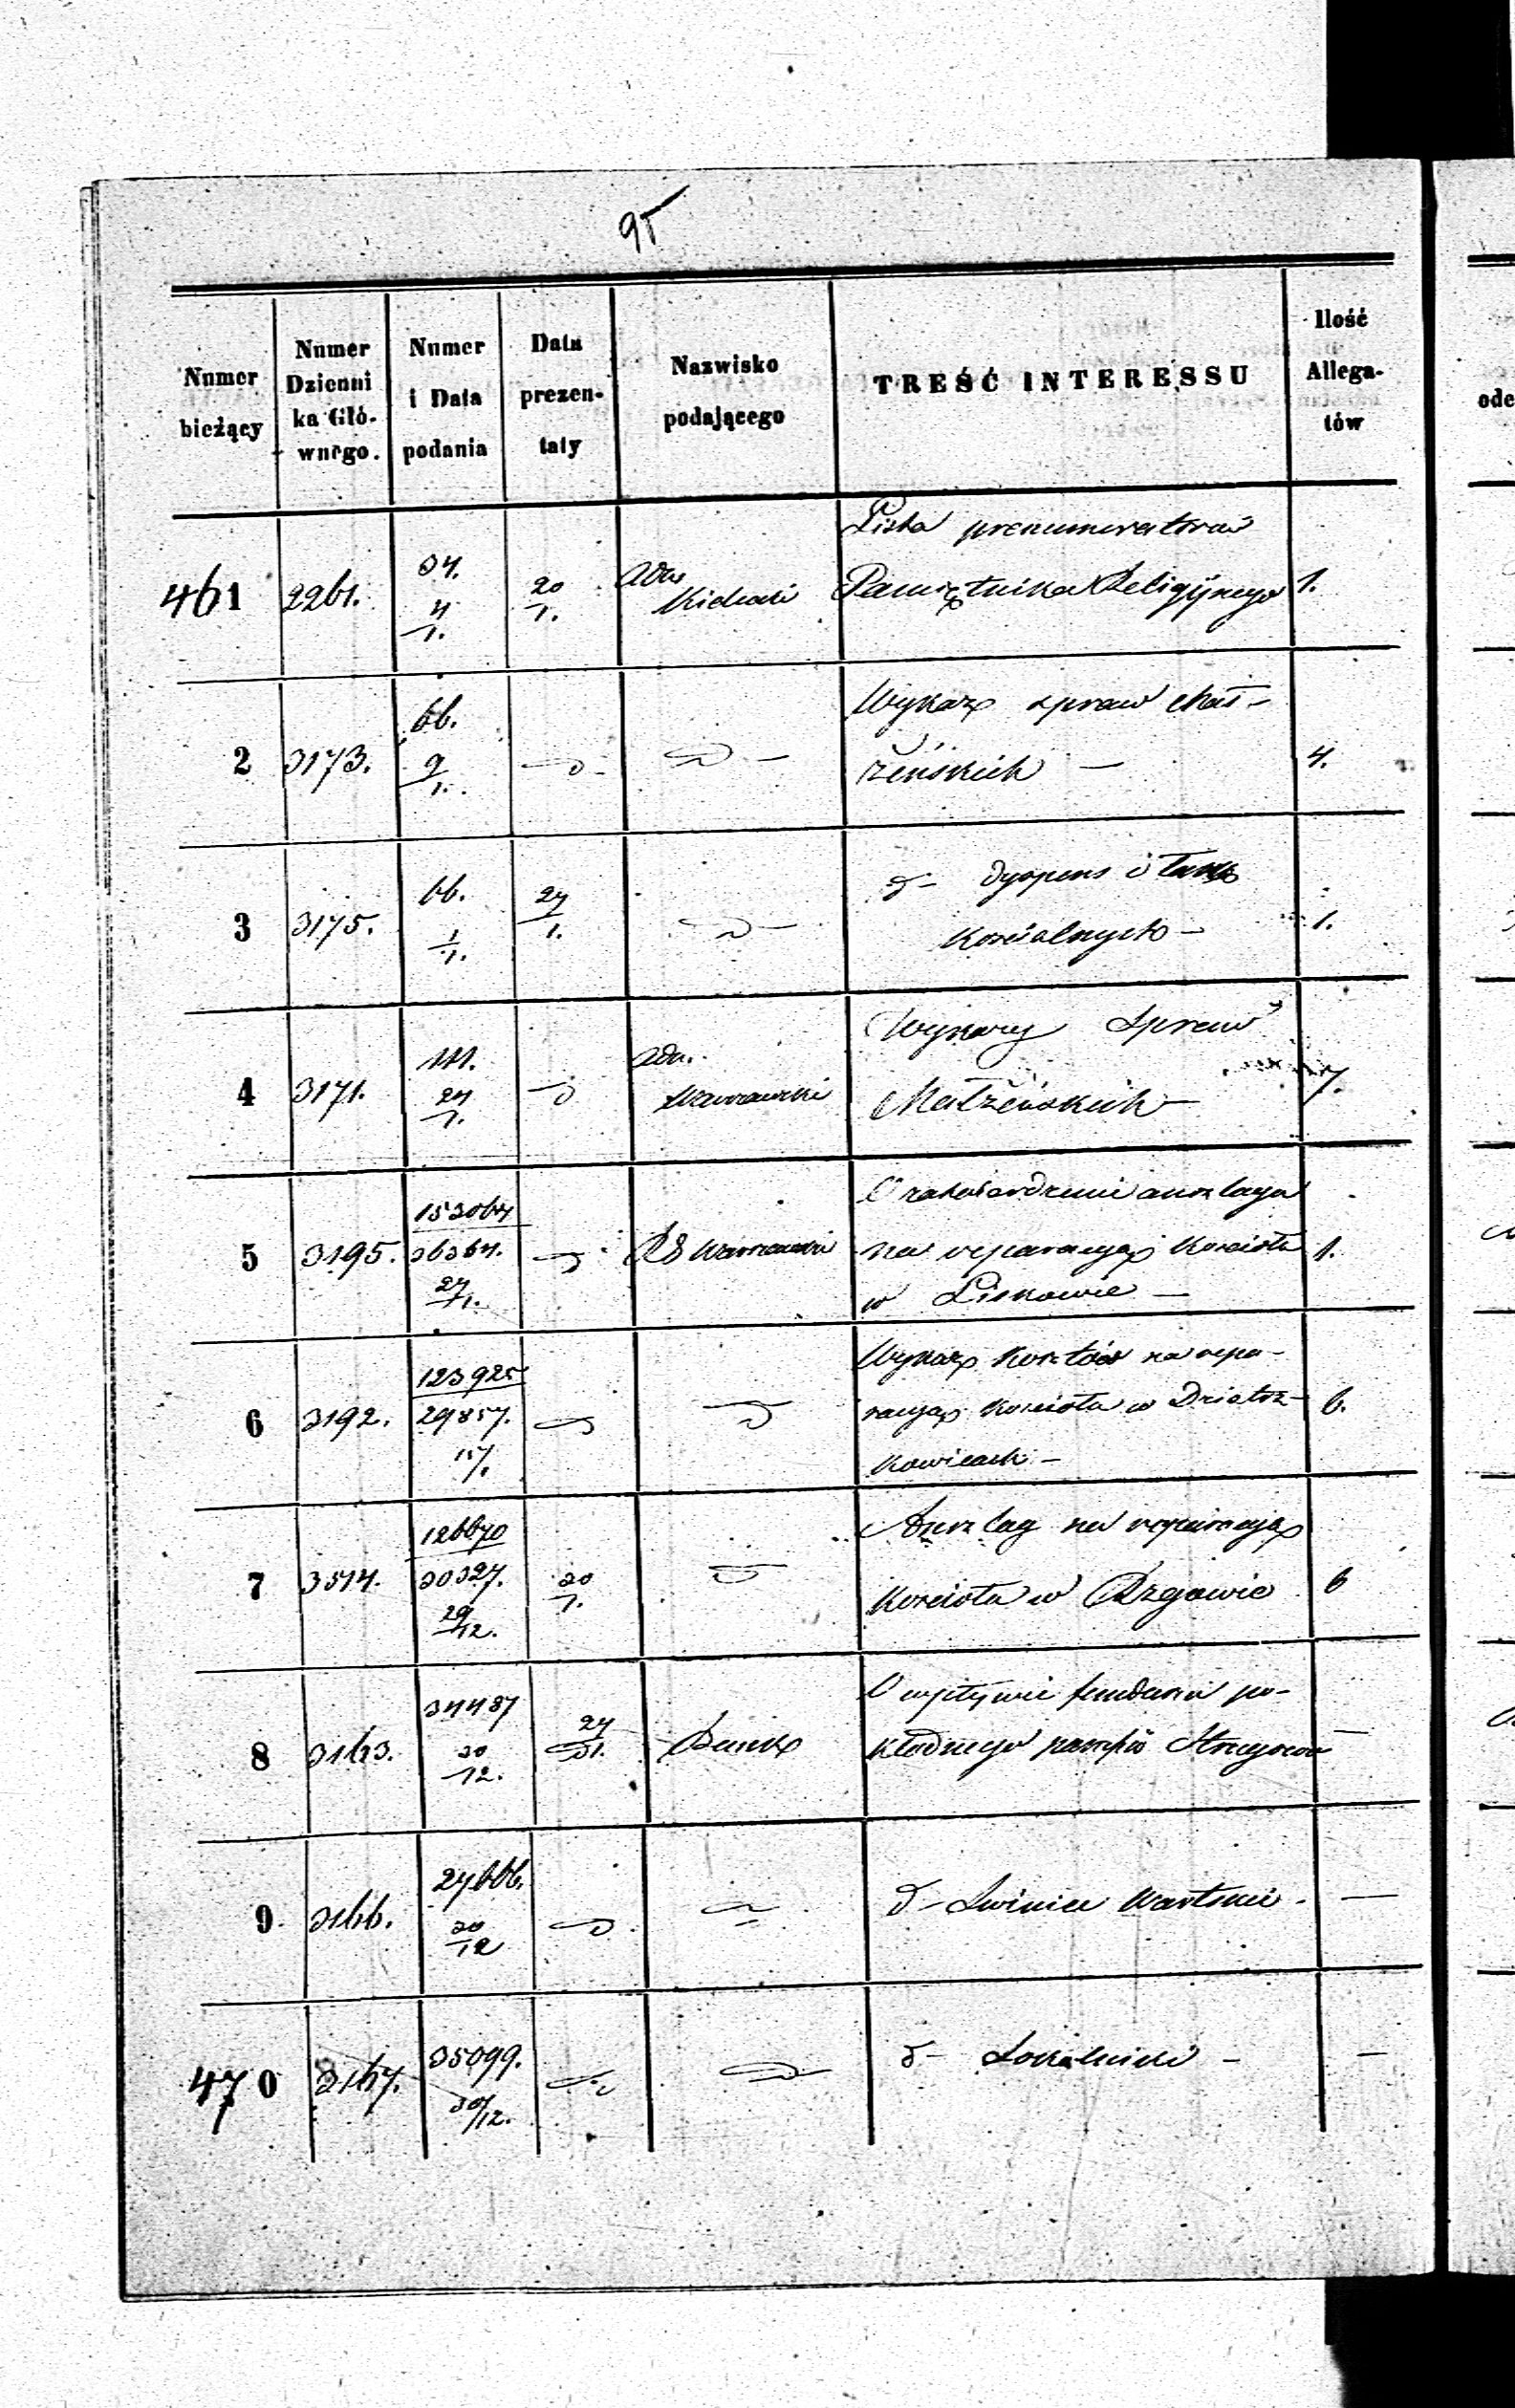 95
Numer bieżący | Numer Dzienni ka Głó- wnego. | Numer i Data podania | Data prezen- taty | Nazwisko podającego | TREŚĆ INTERESSU | Ilość Allega- tów
ode
461 | 2261. | 34. 4/1. | 20/1. | Adm | Lista prenumeratorów
Pamiętnika Religijnego | 1.
2 | 3173. | 66. 9/1. | Wykaz spraw Mał-
żeńskich — | 4.
3 | 3175. | 66. 1/1. | 27/1. | d- dyspens i tax
Kościelnych — | 1.
4 | 3171. | 111. 27/1. | Adm. Warszawski | Wykazy Spraw
Małżeńskich — | 7.
5 | 3195. | 153064 36364. 27/1. | RG Warszawski | O zatwierdzenie anszlagu
na reparacyą Kościoła | 1.
w Liskowie —
6 | 3192. | 123925 29857. 15/1. | Wykaz Kosztów na repa-
racyą Kościoła w Dziatrz- | 6.
kowicach —
7 | 3514. | 126670 30327. 29/12. | 30/1. | Anszlag na reparacyą
Kościoła w Rzgowie | 6
8 | 3163. | 34487 30/12. | 27/1. | Bank | O wpływie funduszu po-
kładnego | —
9 | 3166. | 27666. 30/12 | d- Świnice Warckie | —
470 | 3167. | 35099. 30/12. | d- | —